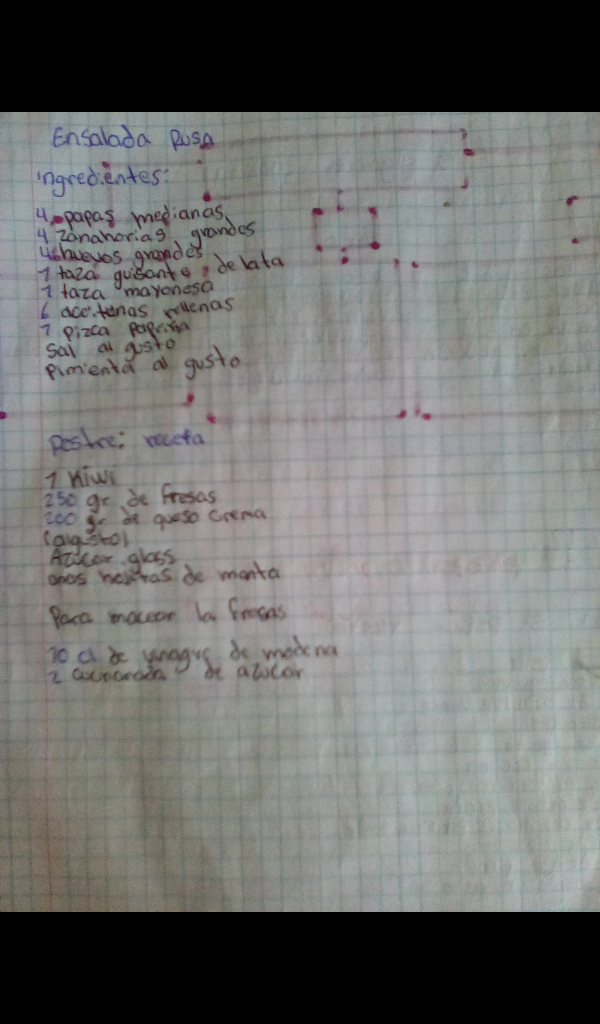 Ensalada Rusa
ingredientes:
4 papas medianas
4 zanahorias grandes
4 huevos grandes
1 taza guisantes de lata
1 taza mayonesa
6 aceitunas rellenas
1 pizca paprika
Sal al gusto
pimienta al gusto
Postre: receta
1 Kiwi
250 gr de fresas
200 gr de queso crema
(algusto)
Azucar glass
unas hojitas de menta
Para macerar la fresas
10 cl de vinagre de modena
2 cucharada de azucar